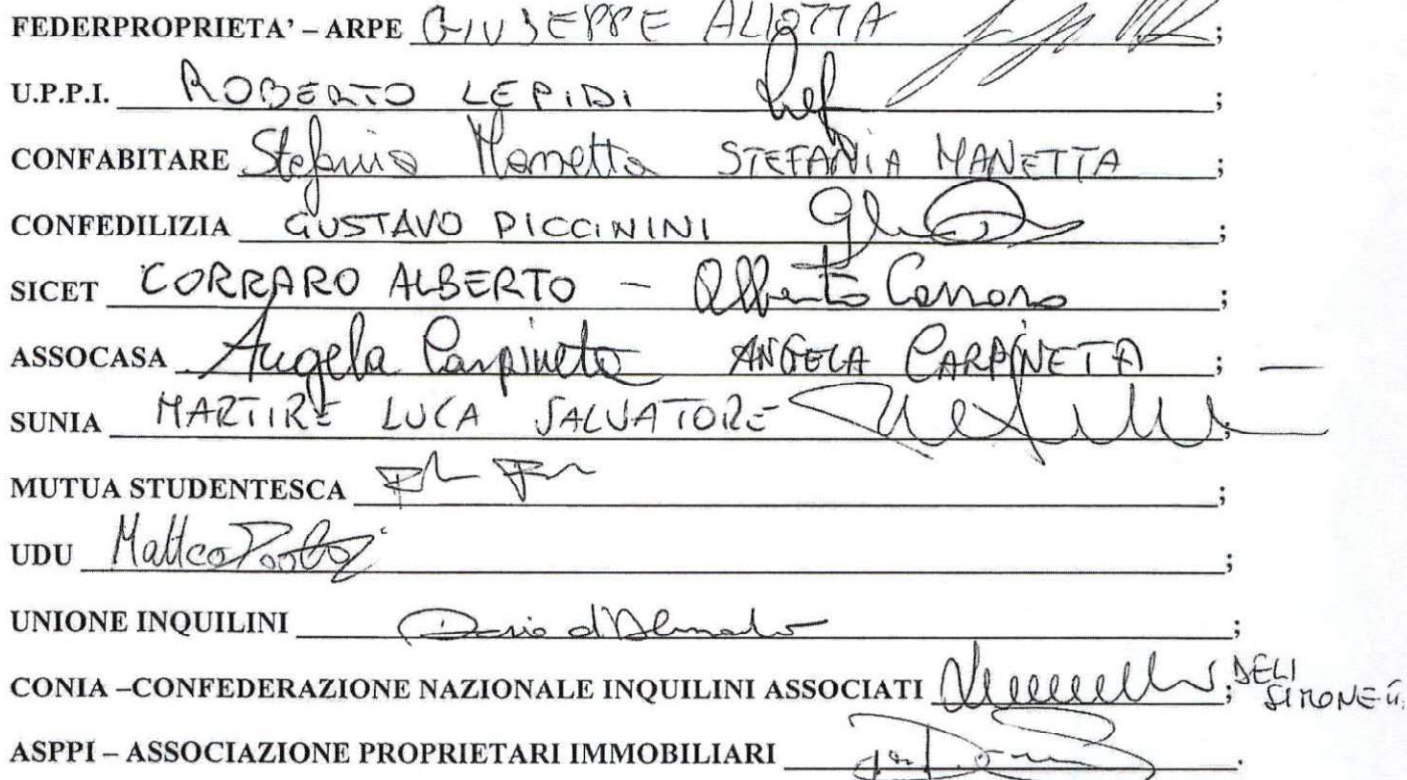 FEDERPROPRIETA' – ARPE GIUSEPPE ALIOTTA ;
U.P.P.I. ROBERTO LEPIDI ;
CONFABITARE Stefania Manetta STEFANIA MANETTA ;
CONFEDILIZIA GUSTAVO PICCININI ;
SICET CORRARO ALBERTO – Alberto Corraro ;
ASSOCASA Angela Carpineta ANGELA CARPINETA ;
SUNIA MARTIRE LUCA SALVATORE ;
MUTUA STUDENTESCA ;
UDU Matteo ;
UNIONE INQUILINI ;
CONIA –CONFEDERAZIONE NAZIONALE INQUILINI ASSOCIATI ; DELI
SIMONE
ASPPI – ASSOCIAZIONE PROPRIETARI IMMOBILIARI .